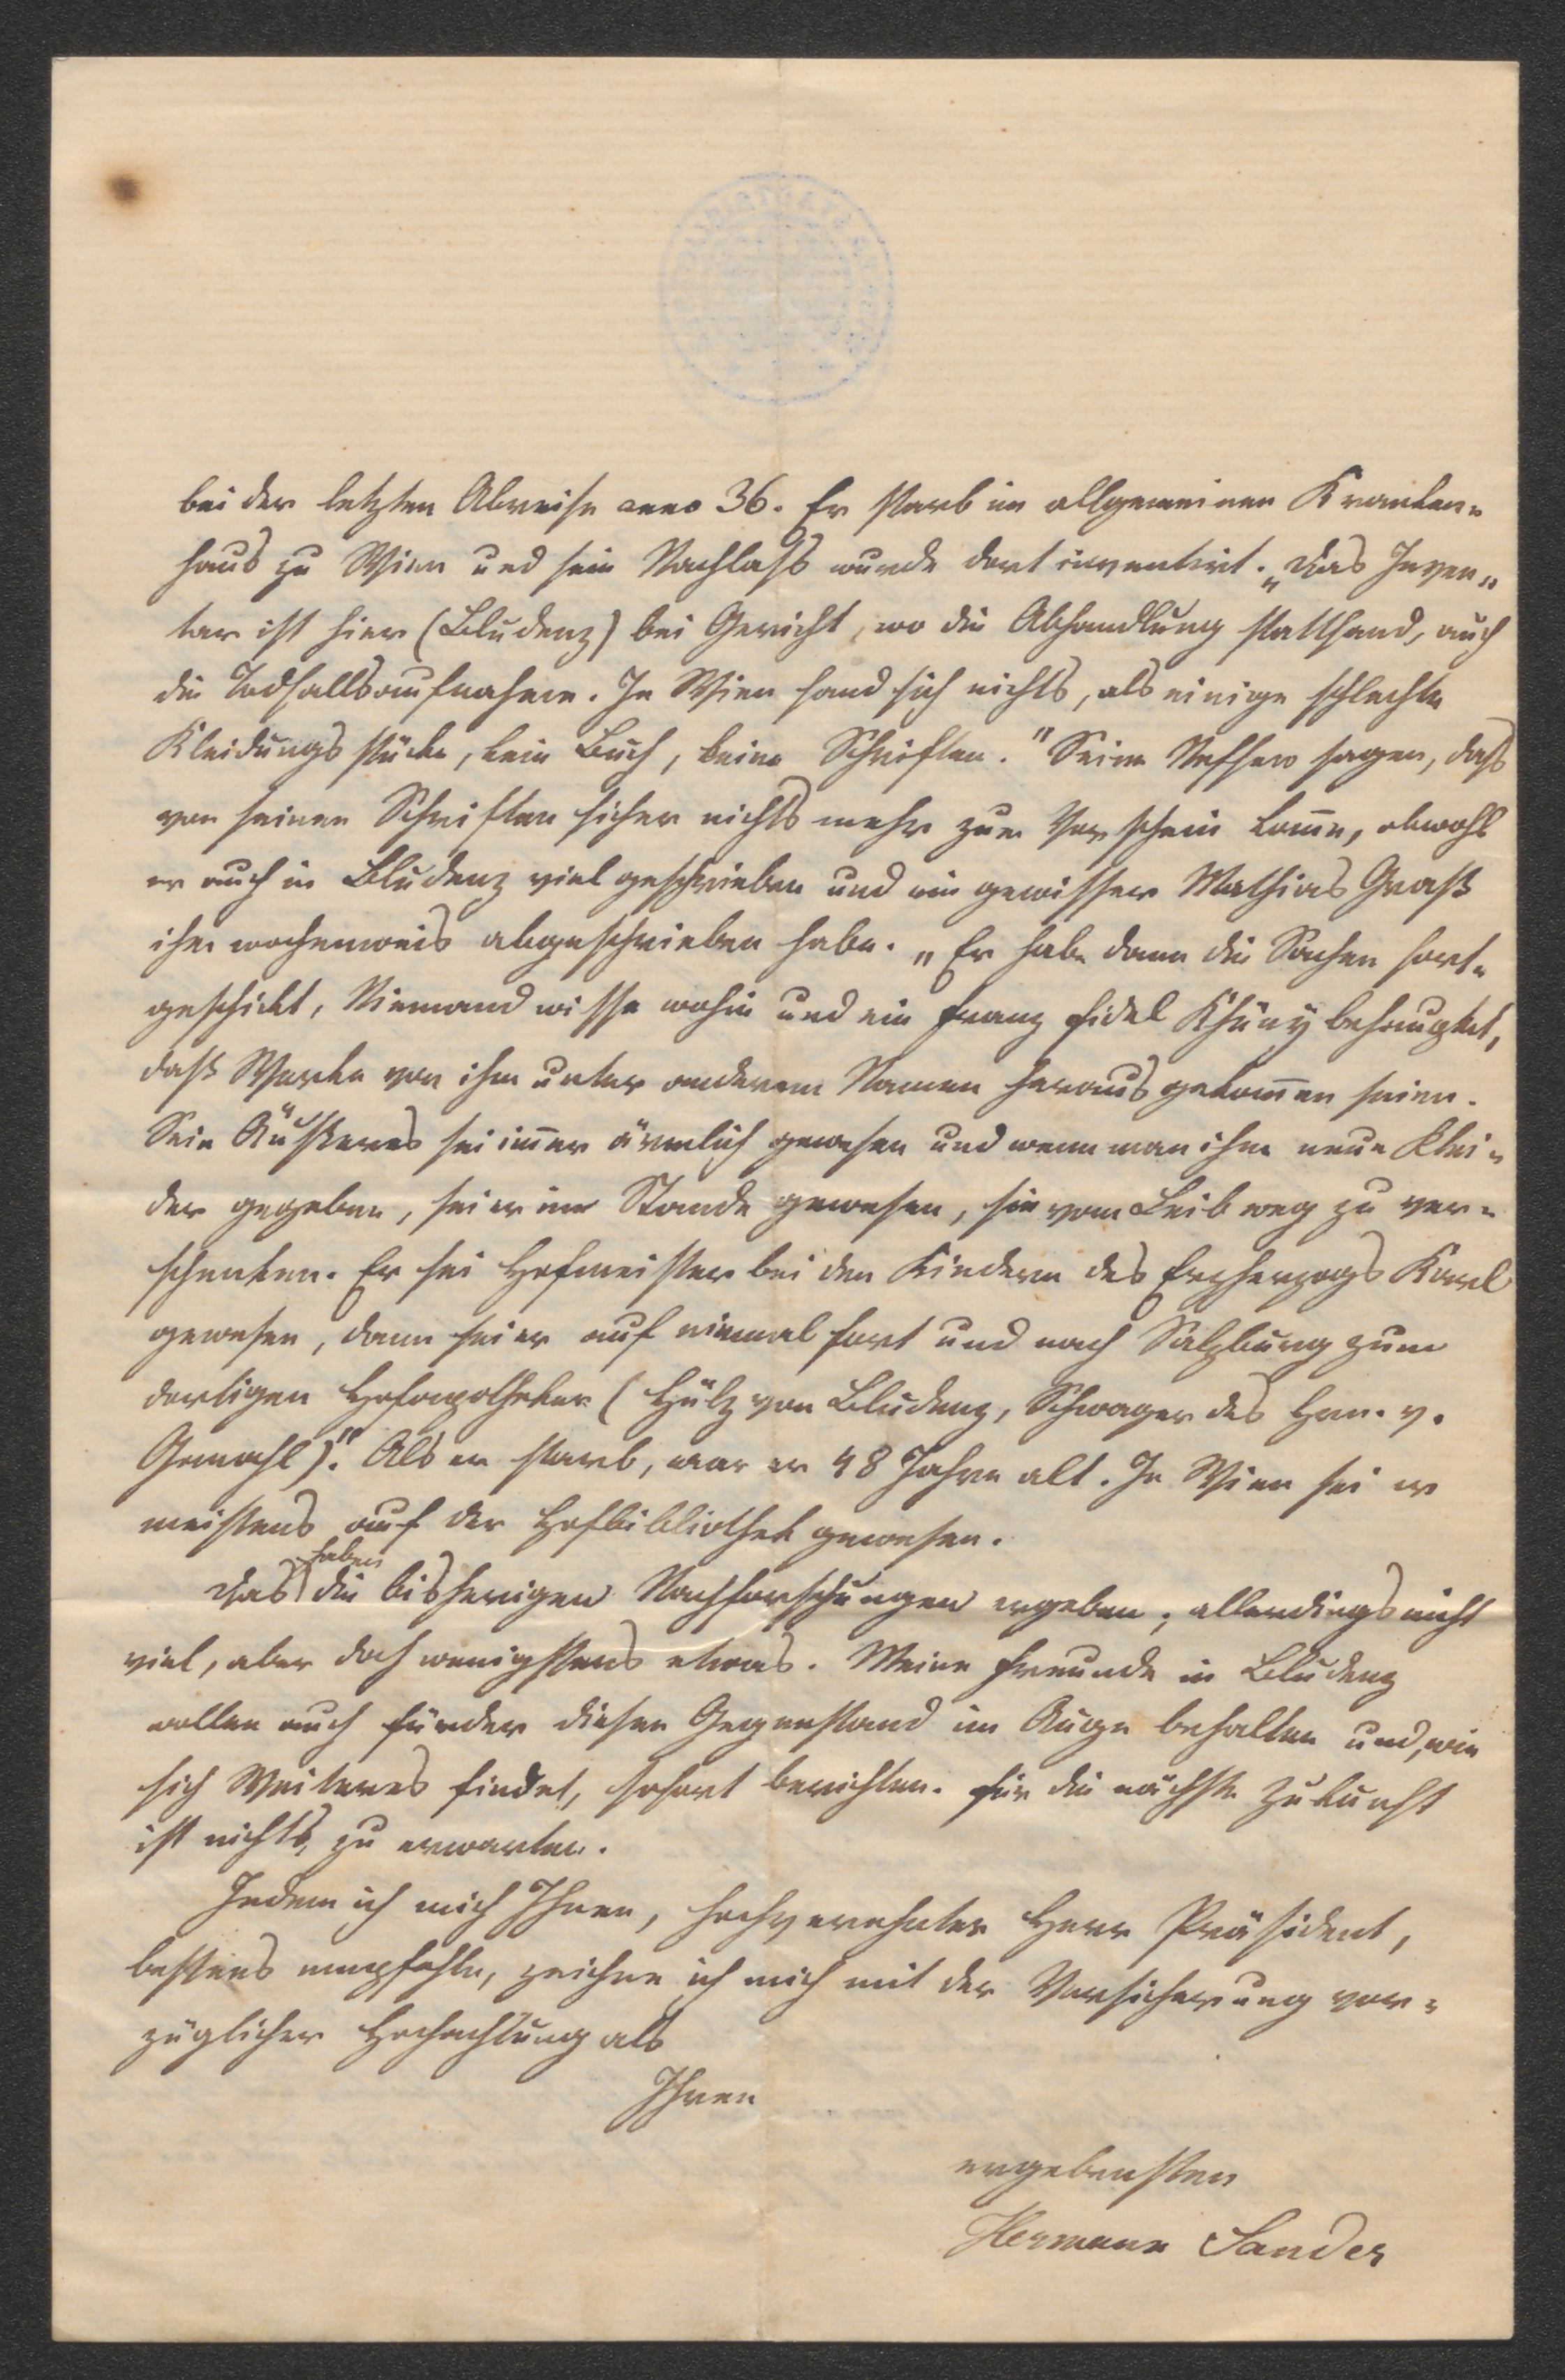 bei der letzten Abreise anno 36. Er starb im allgemeinen Kranken=
haus zu Wien und sein Nachlaß wurde dort inventirt. „Das Inven„
tar ist hier (Bludenz) bei Gericht, wo die Abhandlung stattfand, auch
die Todfallsaufnahme. In Wien fand sich nichts, als einige schlechte
Kleidungsstücke, kein Buch, keine Schriften." Seine Neffen sagen, daß
von seinen Schriften sicher nichts mehr zum Vorschein kom̄e, obwohl
er auch in Bludenz viel geschrieben und ein gewisser Mathias Graß
ihm wochenweis abgeschrieben habe. „Er habe dann die Sachen fort=
geschickt, Niemand wisse wohin und ein Franz Fidel Khüny behauptet,
daß Werke von ihm unter anderem Namen herausgekom̄en seien.
Sein Äußeres sei im̄er ärmlich gewesen und wenn man ihm neue Klei=
der gegeben, sei er im Stande gewesen, sie vom Leib weg zu ver=
schenken. Er sei Hofmeister bei den Kindern des Erzherzogs Karl
gewesen, dann sei er auf einmal fort und nach Salzburg zum
dortigen Hofapotheker (Hülz von Bludenz, Schwager des Hrn. v.
Gemahl)." Als er starb, war er 48 Jahre alt. In Wien sei er
meistens auf der Hofbibliothek gewesen.
Das haben die bisherigen Nachforschungen ergeben; allerdings nicht
viel, aber doch wenigstens etwas. Meine Freunde in Bludenz
wollen auch fürder diesen Gegenstand im Auge behalten und, wie
sich Weiteres findet, sofort berichten. Für die nächste Zukunft
ist nichts zu erwarten.
Indem ich mich Ihnen, hochverehrter Herr Präsident,
bestens empfehle, zeichne ich mich mit der Versicherung vor=
züglicher Hochachtung als
Ihren
ergebensten
Hermann Sander